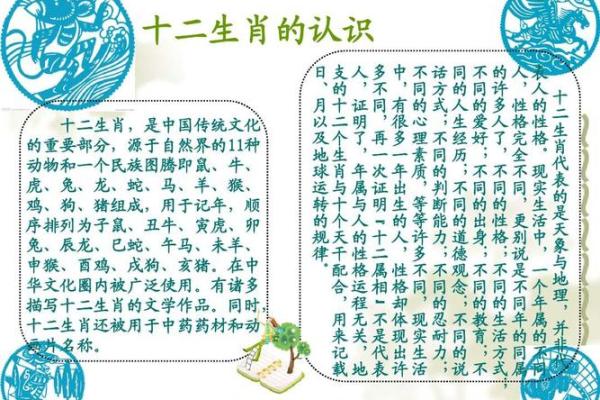 十二生肖的认识
十二生肖，是中国传统文化
的重要部分，源于自然界的11种
动物和一个民族图腾即鼠、牛、
虎、兔、龙、蛇、马、羊、猴、
鸡、狗、猪组成，用于记年，顺
序排列为子鼠、丑牛、寅虎、卯
兔、辰龙、巳蛇、午马、未羊、
申猴、酉鸡、戌狗、亥猪。在中
华文化圈内被广泛使用。有诸多
描写十二生肖的文学作品。同时，
十二生肖还被用于中药药材和动
画片名称。
十二生肖代表的是天象与地理，并非
表人的性格。现实生活中，一个年属的不同
人，性格完全不同，更别说是不同年的同属
的许多人了，不同的性格；不同的生活方式；
不同的爱好；不同的出身；不同的教育；不
同的人生经历；不同的道德观念；不同的说
话方式；不同的判断能力；不同的忍耐力；
不同的心理素质，等等许多不同，现实生活
中，有很多一年出生的人，性格却体现出许
多不同，再一次证明“十二属相”不是代表
人，证明了，年属与人的性格运程无关，地
支的十二个生肖与十个天干配合，用来记载
日、月以及地球运转的规律。